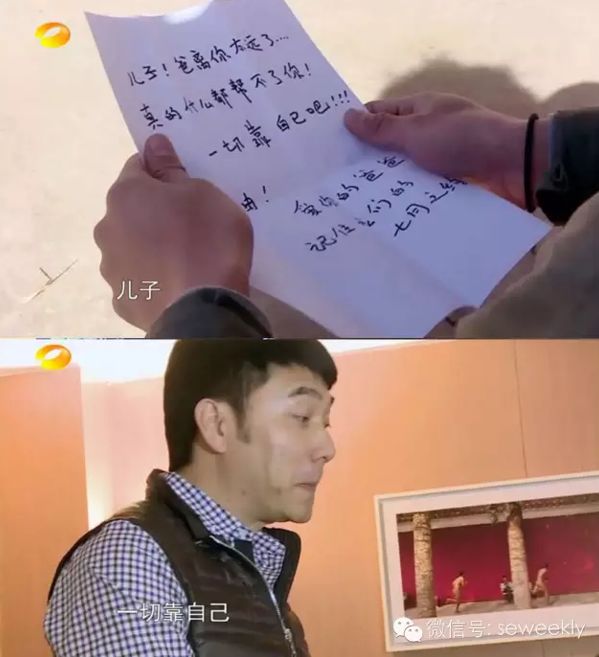 儿子！爸离你太远了....
真的什么都帮不了你！
一切靠自己吧!!!
由！
爱你的爸爸
记住我们的
七同之约
儿子
一切靠自己
微信号: seweekly